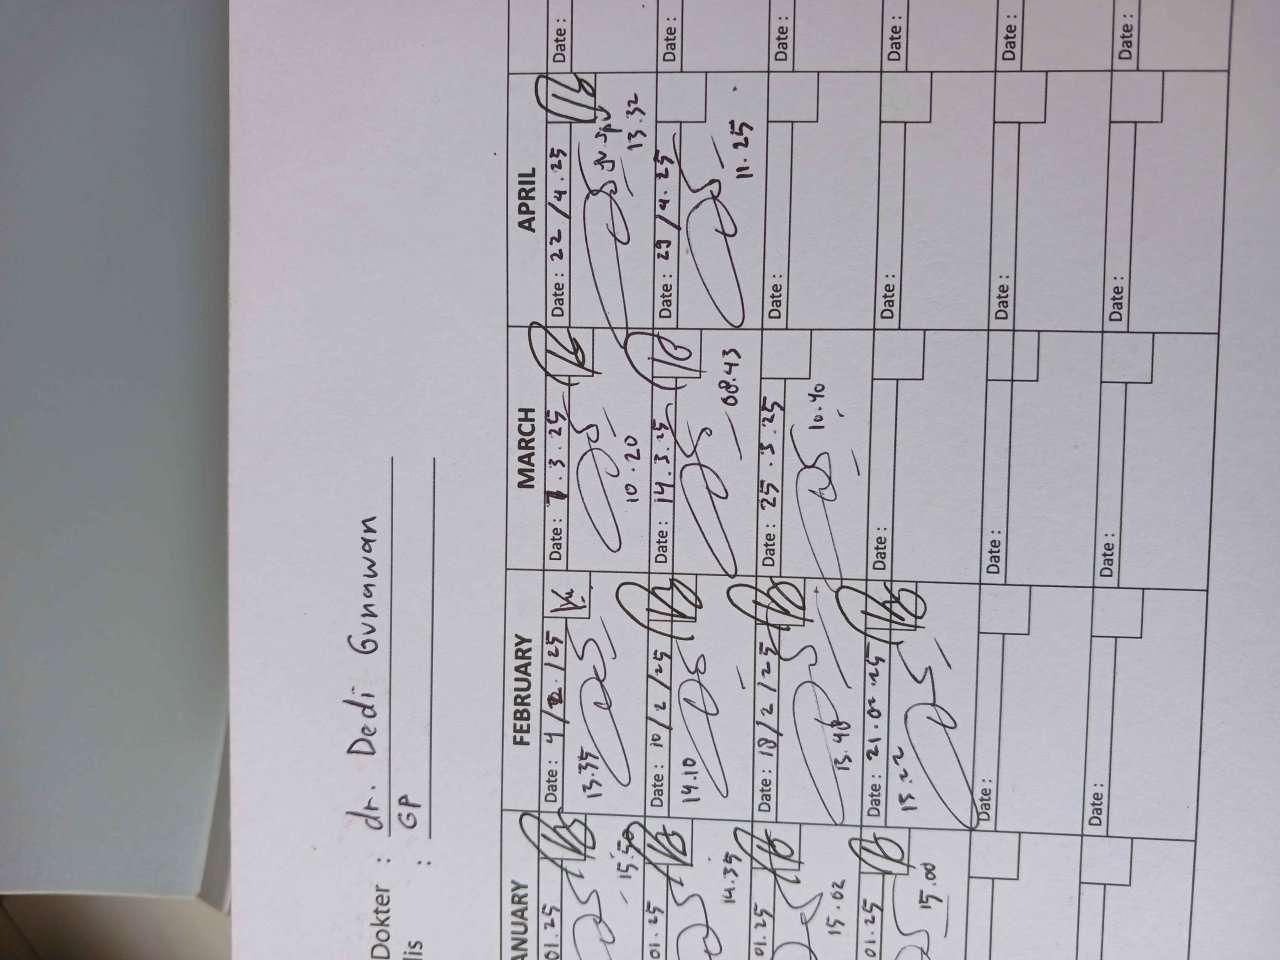 Dokter : dr. Dedi Gunawan
lis : GP
ANUARY FEBRUARY MARCH APRIL
01.25 Date : 4/2/25 Date : 7.3.25 Date : 22/4.25 Date :
15.50 13.35 10.20 13.32
01.25 Date : 10/2/25 Date : 14.3.25 Date : 29/4.25 Date :
14.35 14.10 08.43 11.25
01.25 Date : 18/2/25 Date : 25.3.25 Date : Date :
15.02 13.48 10.40
01.25 Date : 21.02.25 Date : Date : Date :
15.00 15.22
Date : Date : Date : Date :
Date : Date : Date : Date :